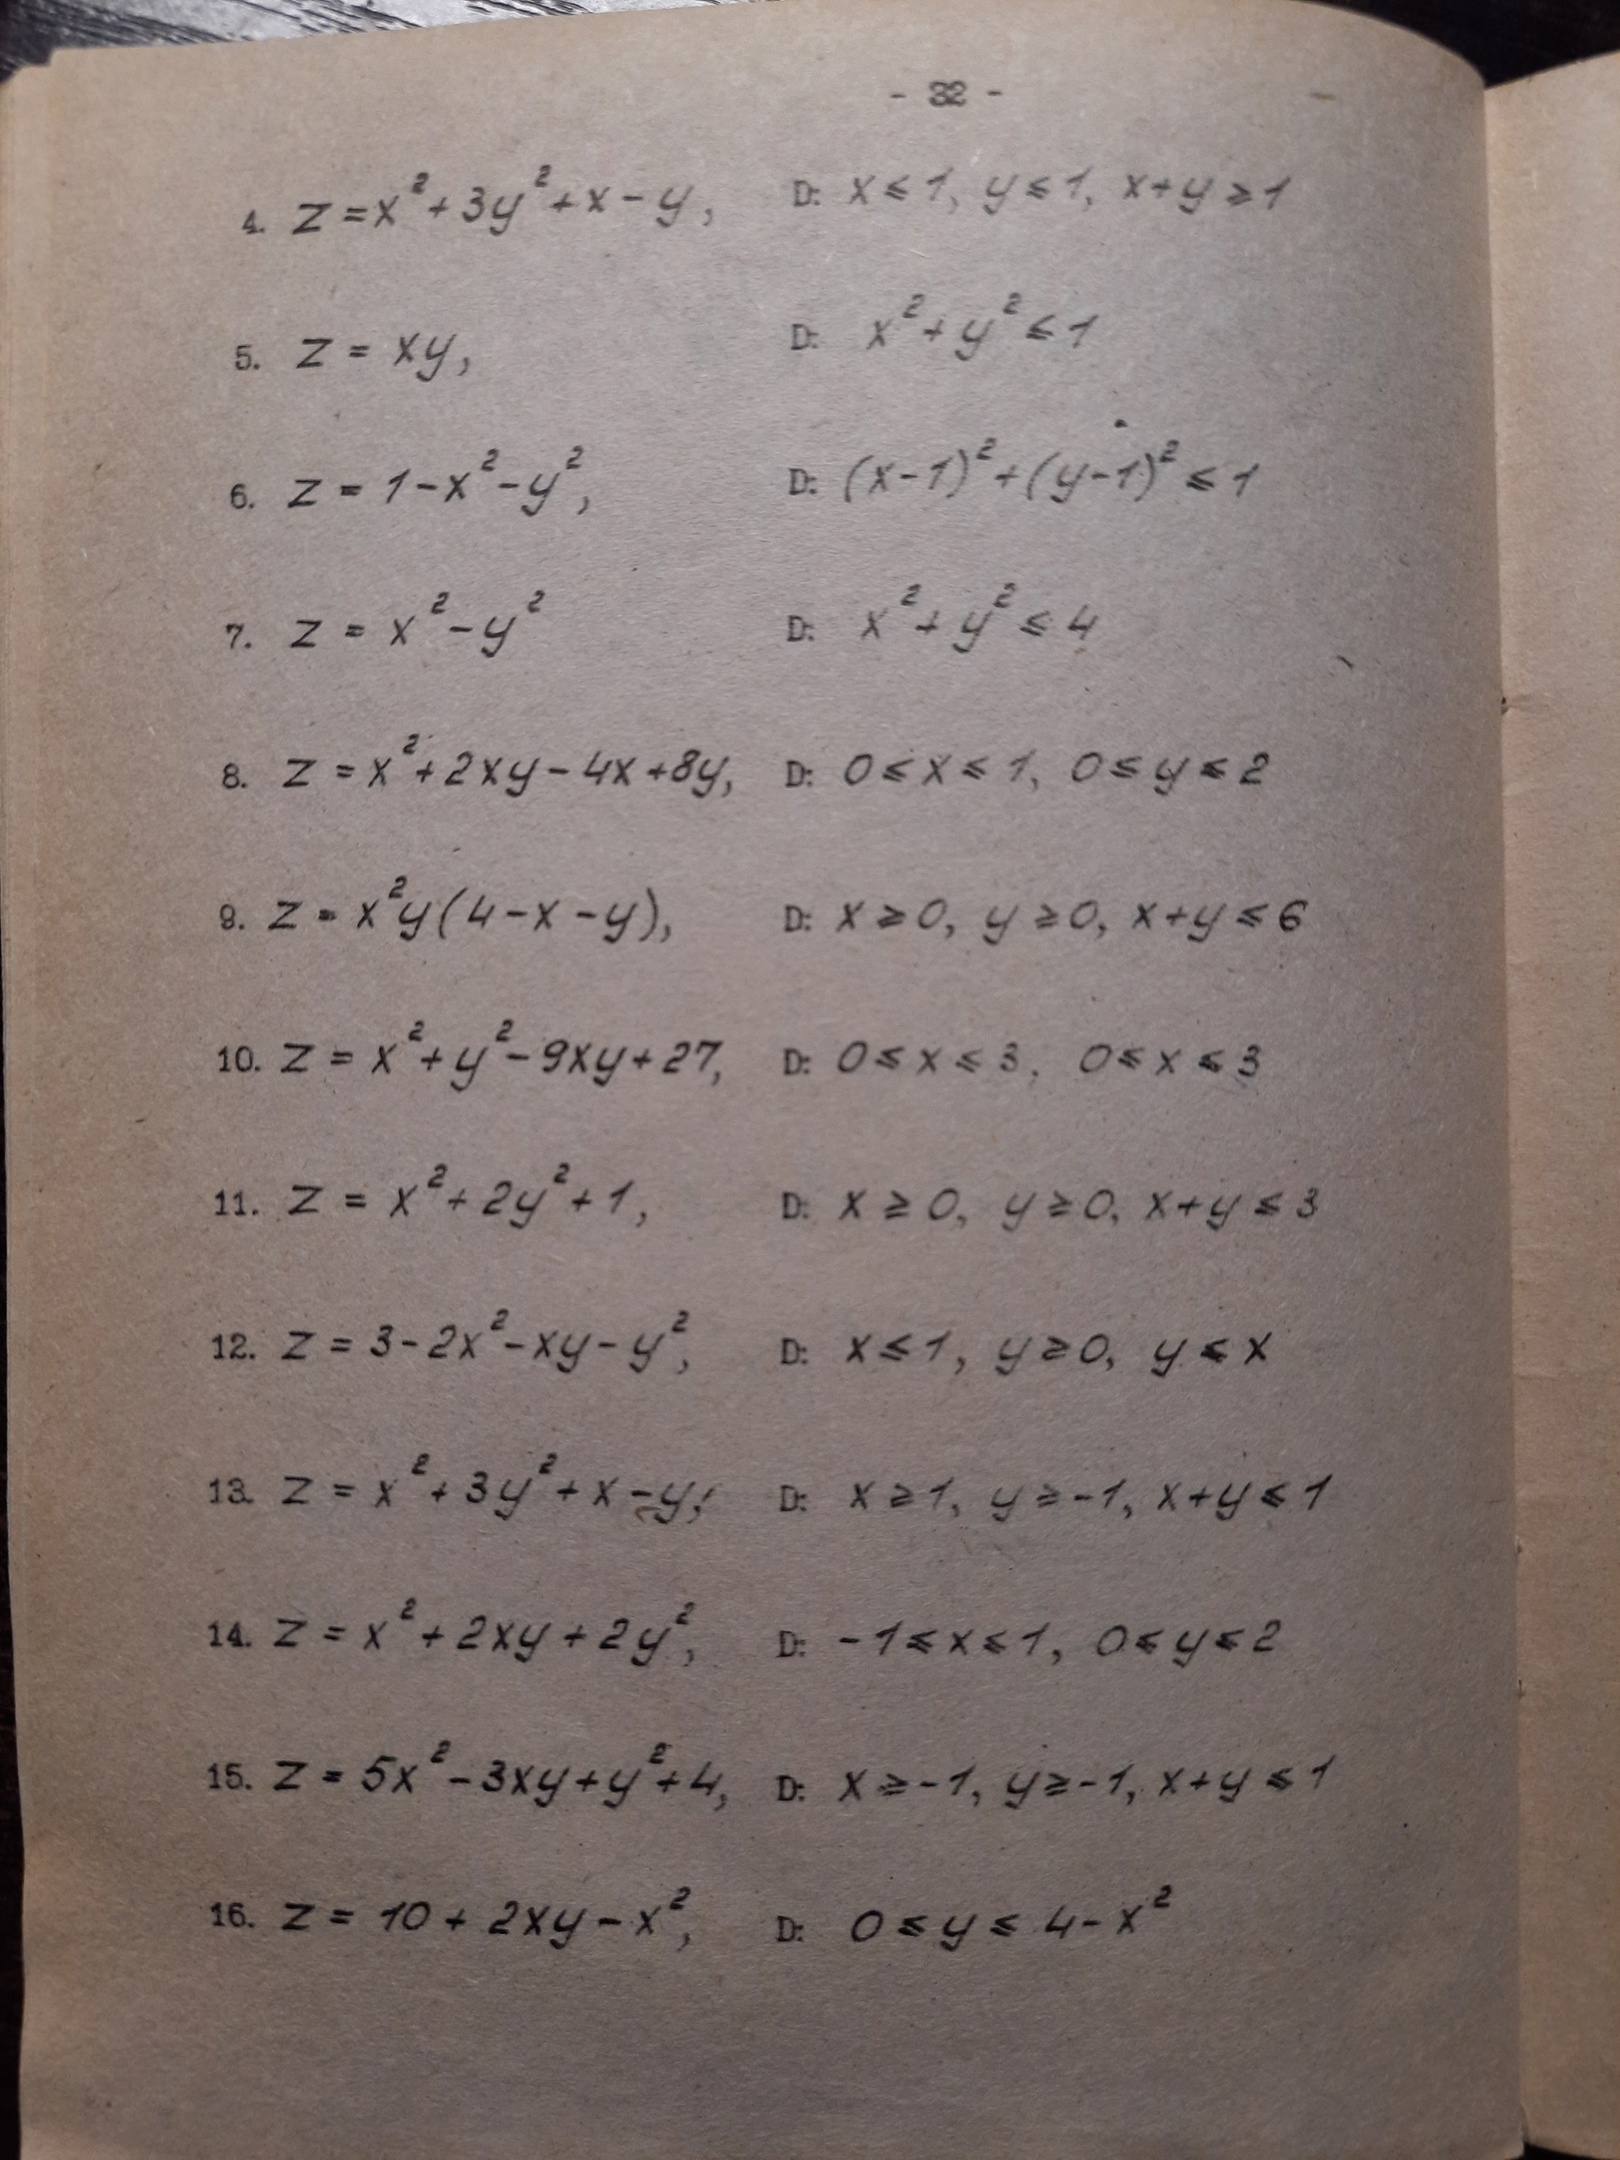 - 32 -
4. z = x² + 3y² + x - y, D: x ⩽ 1, y ⩽ 1, x + y ⩾ 1
5. z = xy, D: x² + y² ⩽ 1
6. z = 1 - x² - y², D: (x-1)² + (y-1)² ⩽ 1
7. z = x² - y² D: x² + y² ⩽ 4
8. z = x² + 2xy - 4x + 8y, D: 0 ⩽ x ⩽ 1, 0 ⩽ y ⩽ 2
9. z = x²y(4 - x - y), D: x ⩾ 0, y ⩾ 0, x + y ⩽ 6
10. z = x² + y² - 9xy + 27, D: 0 ⩽ x ⩽ 3, 0 ⩽ x ⩽ 3
11. z = x² + 2y² + 1, D: x ⩾ 0, y ⩾ 0, x + y ⩽ 3
12. z = 3 - 2x² - xy - y², D: x ⩽ 1, y ⩾ 0, y ⩽ x
13. z = x² + 3y² + x - y, D: x ⩾ 1, y ⩾ -1, x + y ⩽ 1
14. z = x² + 2xy + 2y², D: -1 ⩽ x ⩽ 1, 0 ⩽ y ⩽ 2
15. z = 5x² - 3xy + y² + 4, D: x ⩾ -1, y ⩾ -1, x + y ⩽ 1
16. z = 10 + 2xy - x², D: 0 ⩽ y ⩽ 4 - x²